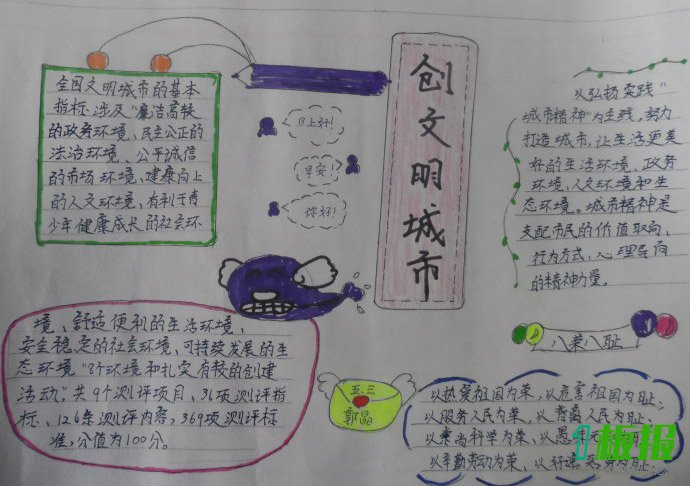 创文明城市
全国文明城市的基本
指标涉及“廉洁高效
的政务环境、民主公正的
法治环境、公平诚信
的市场环境、健康向上
的人文环境、有利于青
少年健康成长的社会环
晚上好!
早安!
你好!
境、舒适便利的生活环境、
安全稳定的社会环境、可持续发展的生
态环境”8个环境和扎实有较的创建
活动”,共9个测评项目、36项测评指
标、126条测评内容,369项测评标
准,分值为100分。
以弘扬实践“
城市精神”为主线,努力
打造城市,让生活更美
好的生活环境、政务
环境、人文环境和生
态环境。城市精神是
支配市民的价值取向、
行为方式,心理导向
的精神力量。
八荣八耻
五.三
郭晶
以热爱祖国为荣,以危害祖国为耻、
以服务人民为荣、以背离人民为耻、
以崇尚科学为荣、以愚昧
以辛勤劳动为荣、以好逸恶劳为耻、
板报